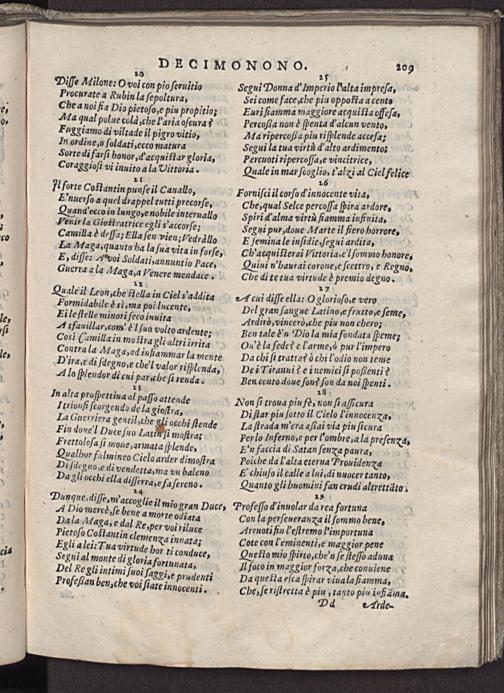 DECIMONONO. 209
20
Disse Milone: O voi con pio seruitio
Procurate a Rubin la sepoltura,
Che a noi fia Dio pietoso, e piu propitio;
Ma qual polue colà, che l'aria oscura?
Fuggiamo di viltade il pigro vitio,
In ordine, o soldati, ecco matura
Sorte di farsi honor, d'acquistar gloria,
Coraggiosi vi inuito a la Vittoria.
21
Il forte Costantin punse il Cauallo,
E'nuerso a quel drappel tutti precorse,
Quand'ecco in lungo, e nobile interuallo
Venir la Giostratrice egli s'accorse;
Camilla è dessa; Ella sen vien; Vedrallo
La Maga, quanto ha la sua vita in forse,
E, disse: A voi Soldati, annuntio Pace,
Guerra a la Maga, a Venere mendace.
22
Quale il Leon, che stella in Ciel s'addita
Formidabile è sì, ma poi lucente,
Ei le stelle minori seco inuita
A sfauillar, com'è l suo volto ardente;
Così Camilla in mostra gli altri irrita
Contra la Maga, ad infiammar la mente
D'ira, e di sdegno; e che'l valor risplenda,
A lo splendor di cui par che si renda.
23
In alta prospettiua al passo attende
I trionfi scorgendo de la giostra,
La Guerriera gentil, che gli occhi stende
Fin doue'l Duce suo Latin si mostra;
Frettolosa si moue, armata splende,
Qualhor fulmineo Cielo arder dimostra
Di sdegno, e di vendetta, ma vn baleno
Da gli occhi ella disserra, e fa sereno.
24
Dunque, disse, m'accoglie il mio gran Duce,
A Dio mercè, se bene a morte odiata
Da la Maga, e dal Re, per voi riluce
Pietoso Costantin clemenza innata;
Egli a lei: Tua virtude hor ti conduce,
Segui al monte di gloria fortunata,
Del Re gli intimi suoi saggi, e prudenti
Professan ben, che voi siate innocenti.
25
Segui Donna d'Imperio l'alta impresa,
Sei come face, che piu opposta a cento
Euri fiamma maggiore acquista offesa,
Percossa non è spenta d'alcun vento,
Ma ripercossa piu risplende accesa;
Segui la tua virtù d'alto ardimento;
Percuoti ripercossa, e vincitrice,
Quale in mar scoglio, t'alzi al Ciel felice
26
Fornisci il corso d'innocente vita,
Che, qual Selce percossa spira ardore,
Spiri d'alma virtù fiamma infinita,
Segui pur, doue Marte il fiero horrore,
E semina le insidie, segui ardita,
Ch'acquisterai Vittoria, e'l sommo honore,
Quiui n'haurai corone, e scettro, e Regno,
Che di te tua virtude è premio degno.
27
A cui disse ella: O glorioso, e vero
Del gran sangue Latino, e frutto, e seme,
Ardirò, vincerò, che piu non chero;
Ben tale è'n Dio la mia fondata speme;
Ou'è la fede? e l'arme, ò pur l'impero
Da chi si tratta? ò chi l'odio non teme
De i Tiranni? e i nemici si possenti?
Ben cento doue son? son da noi spenti.
28
Non si troua piu fè, non si assicura
Di star piu sotto il Cielo l'innocenza,
La strada m'era assai via piu sicura
Per lo Inferno, e per l'ombre, a la presenza,
E'n faccia di Satan senza paura,
Poiche da l'alta eterna Prouidenza
E' chiuso il calle a lui, di nuocer tanto,
Quanto gli huomini fan crudi altrettãto.
29
Professo d'inuolar da rea fortuna
Con la perseueranza il sommo bene,
Arruoti fin l'estremo l'importuna
Cote con l'eminenti, e maggior pene
Questo mio spirto, che'n se stesso aduna
Il foco in maggior forza, che conuiene
Da questa esca spirar viua la fiamma,
Che, se ristretta è piu, tanto piu infiãma.
Dd Arde-